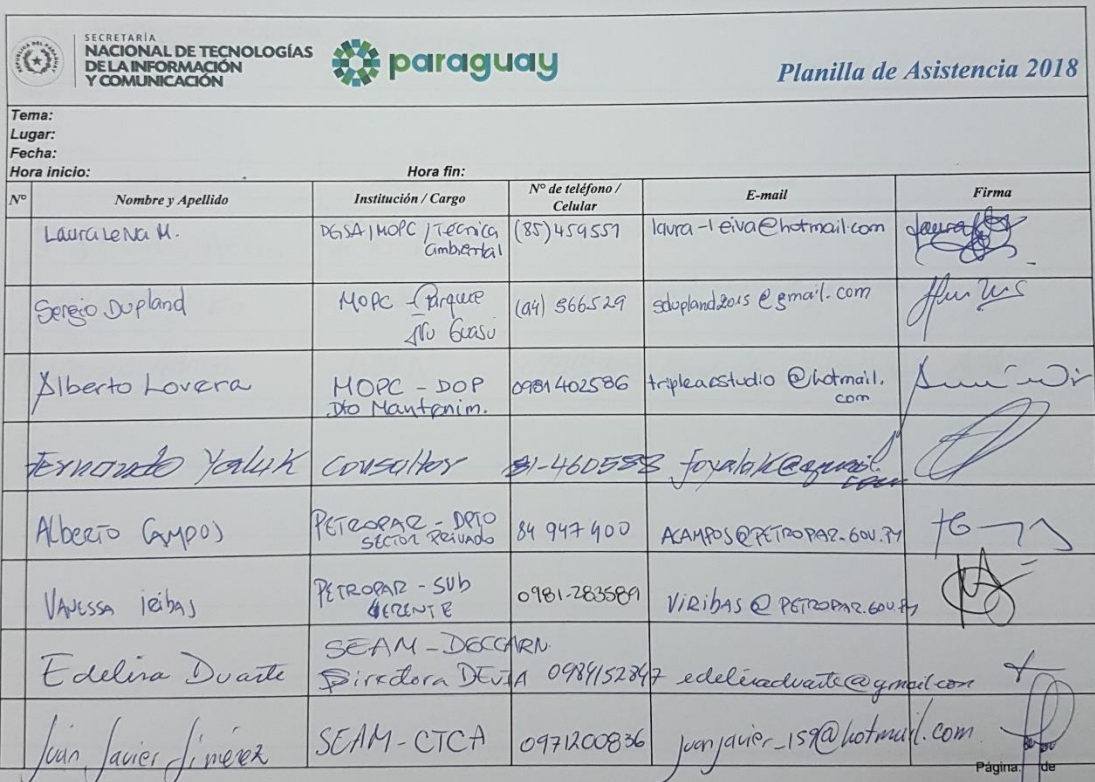 SECRETARÍA
NACIONAL DE TECNOLOGÍAS
DE LA INFORMACIÓN
Y COMUNICACIÓN
paraguay
Planilla de Asistencia 2018
Tema:
Lugar:
Fecha:
Hora inicio: Hora fin:
Nº Nombre y Apellido Institución / Cargo Nº de teléfono / Celular E-mail Firma
Laura Leiva M. DGSA/MOPC/Técnica (85)459551 laura-leiva@hotmail.com
ambiental
Sergio Dupland MOPC - Parque (94) 566529 sdupland2015@gmail.com
Ñu Guasu
Alberto Lovera MOPC - DOP 0981402586 tripleaestudio@hotmail.
Dto Mantenim. com
Fernando Yaluk Consultor 81-460588 foyaluk@gmail.
com
Alberto Campos PETROPAR - DPTO 84 947 400 ACAMPOS@PETROPAR.GOV.PY
SECTOR PRIVADO
VANESSA IRIBAS PETROPAR - SUB 0981-283589 VIRIBAS@PETROPAR.GOV.PY
GERENTE
Edelira Duarte SEAM - DGCCARN.
Directora DEVIA 0984152847 edeliraduarte@gmail.com
Juan Javier Jiménez SEAM - CTCA 0971200836 juanjavier_159@hotmail.com
Página: de